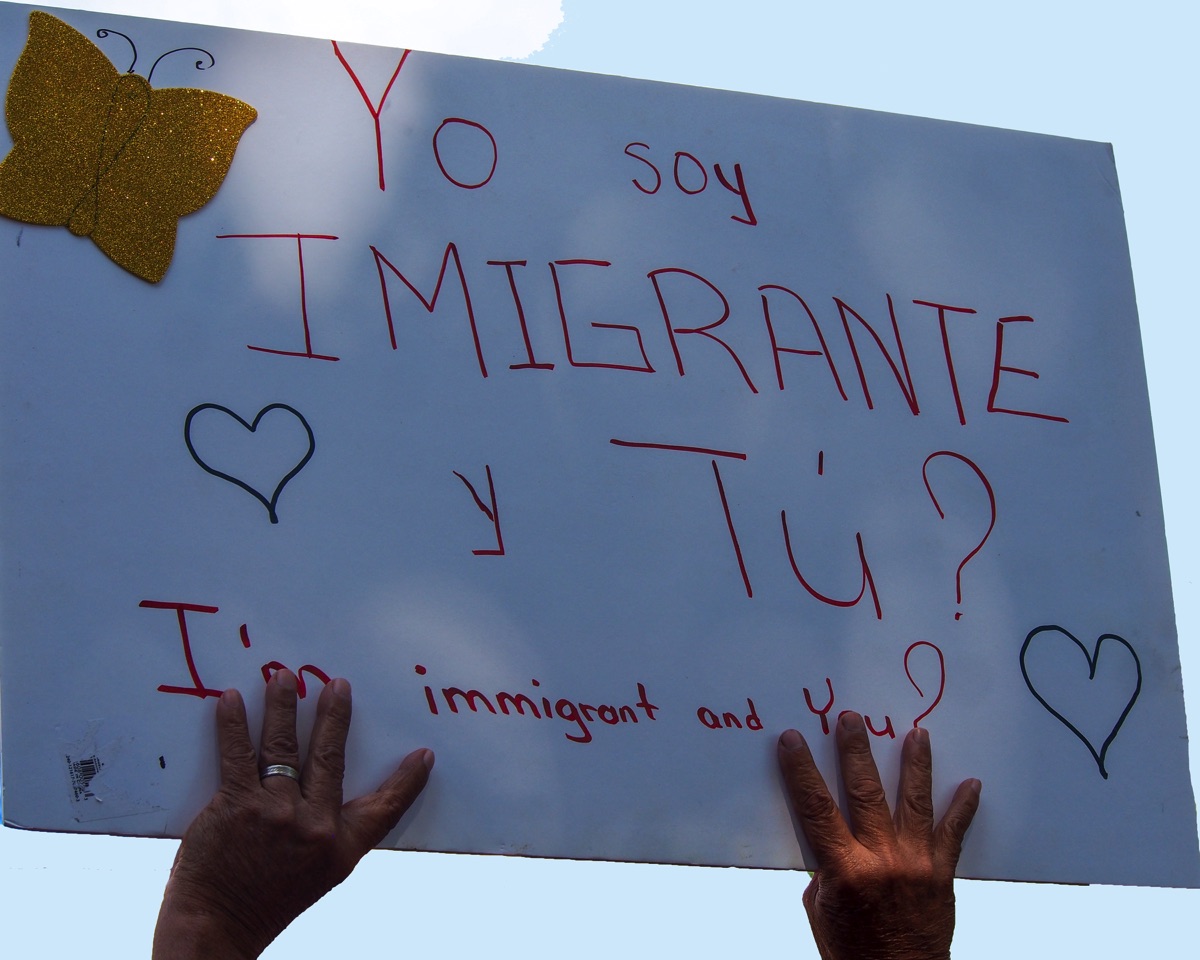 Yo soy
IMIGRANTE
y Tú?
I'm immigrant and You?